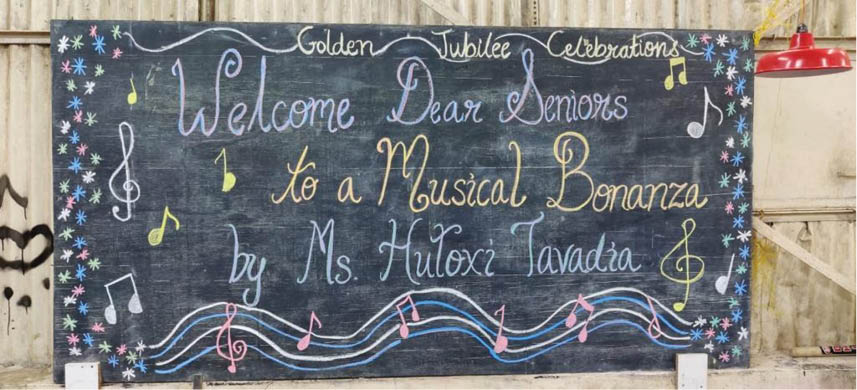 Golden Jubilee Celebrations
Welcome Dear Seniors
to a Musical Bonanza
by Ms. Hutoxi Tavadia